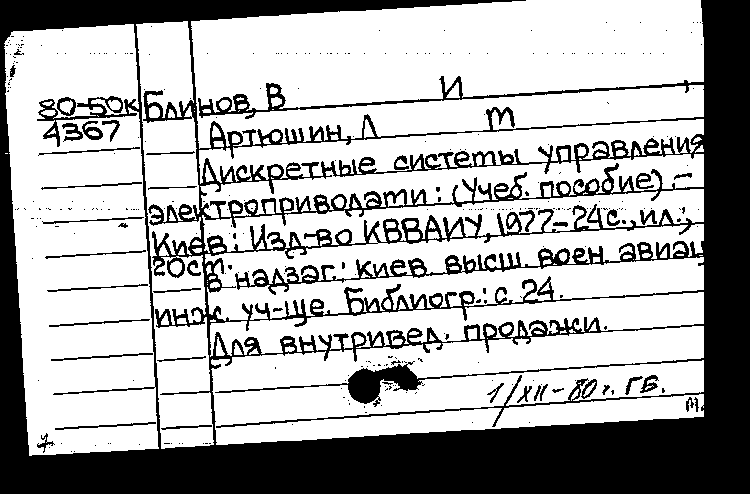 80-50к Блинов, В И ,
4367 Артюшин, Л М
Дискретные системы управления
электроприводами: (Учеб. пособие).-
Киев: Изд-во КВВАИУ, 1977-24с., ил.;
20см. В надзаг.: Киев. высш. воен. авиац
инж. уч-ще. Библиогр.: с. 24.
Для внутривед. продажи.
1/XII-80г. ГБ.
м.